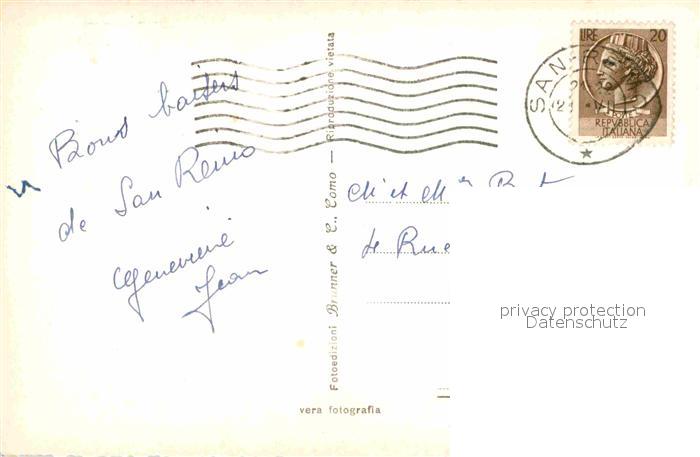 Bons baisers
de San Remo
Geneviève
Jean
Fotoedizioni Brunner & C., Como — Riproduzione vietata
vera fotografia
LIRE 20
REPVBBLICA
ITALIANA
SANR
VII
M et Mme R
privacy protection
Datenschutz